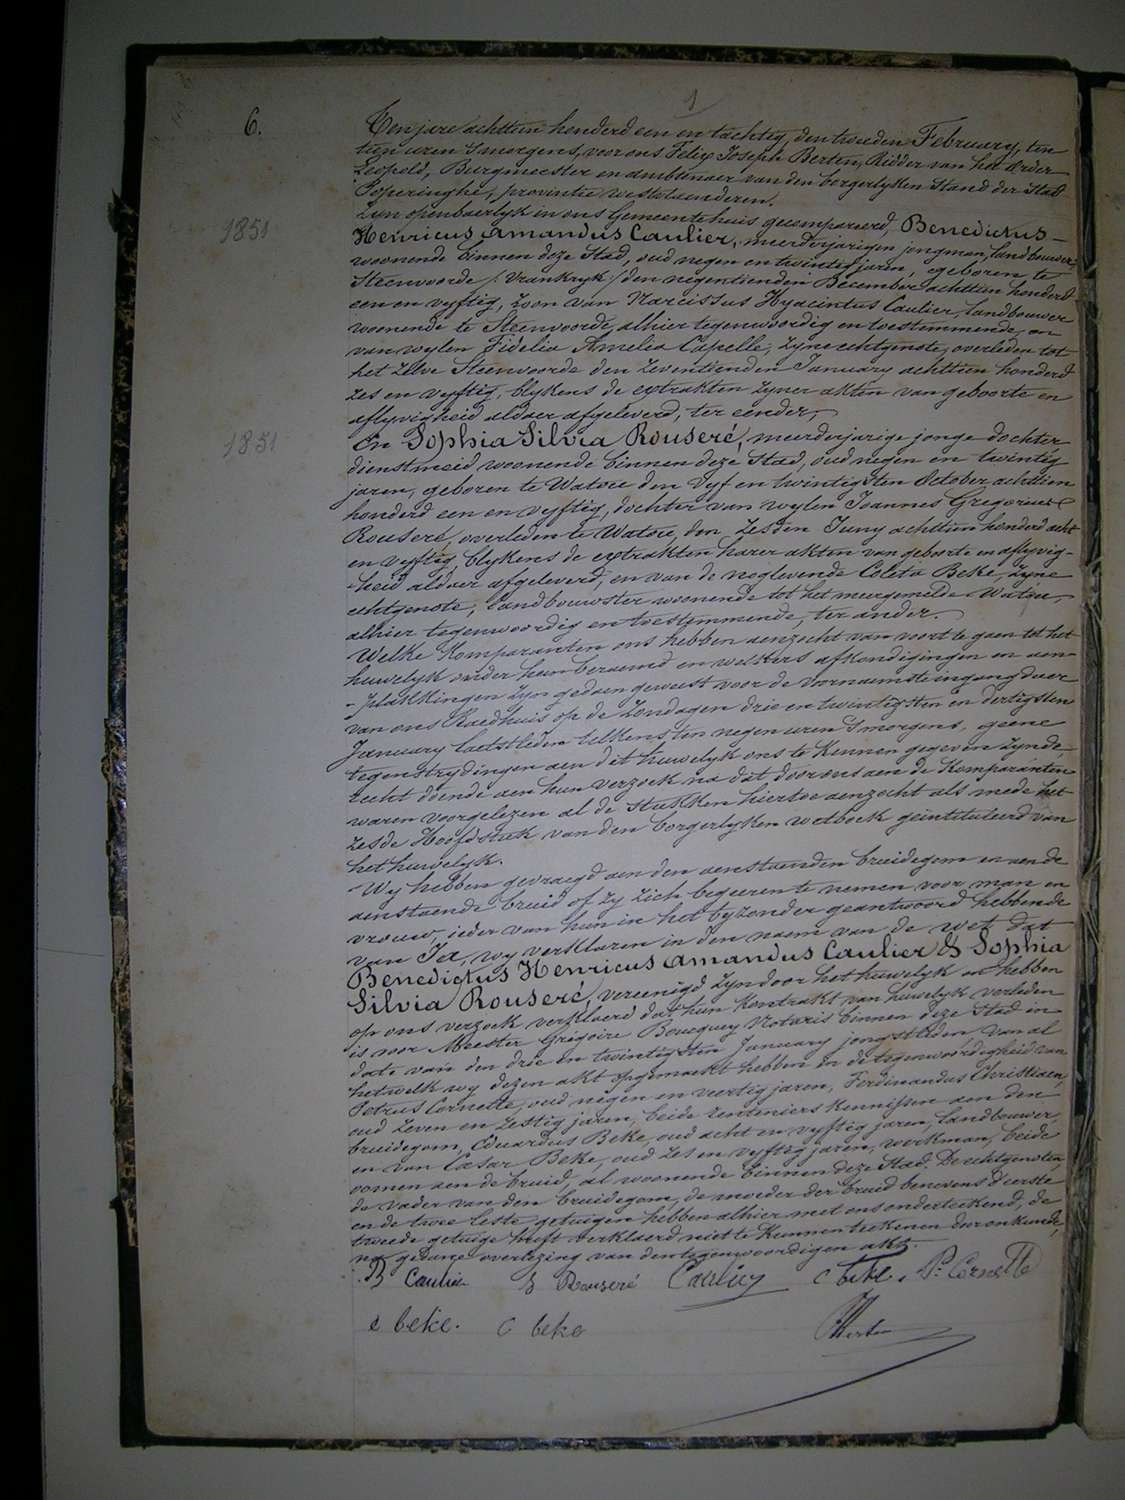 1
6.
Ten jare achttien honderd een en tachtig, den tweeden February, ten
tien uren 's morgens, voor ons Felix Joseph Berten, Ridder van het Order
Leopold, Burgmeester en ambtenaer van den borgerlyken Stand der Stad
Poperinghe, provintie Westvlaenderen.
Zyn openbaerlyk in ons Gemeentehuis gecompareerd, Benedictus
1851
Henricus Amandus Caulier, meerderjarigen jongman, landbouwer,
woonende binnen deze Stad, oud negen en twintig jaren, geboren te
Steenvoorde /: Vrankryk :/ den negentienden December achttien honderd
een en vyftig, zoon van Narcissus Hyacintus Caulier, landbouwer
woonende te Steenvoorde, alhier tegenwoordig en toestemmende, en
van wylen Fidelia Amelia Capelle, zyne echtgenote, overleden tot
het zelve Steenvoorde den zeventienden January achttien honderd
zes en vyftig, blykens de extrakten zyner akten van geboorte en
aflyvigheid aldaer afgeleverd, ter eender,
1851
En Sophia Silvia Rouseré, meerderjarige jonge dochter
dienstmeid woonende binnen deze Stad, oud negen en twintig
jaren, geboren te Watou den vyf en twintigsten October achttien
honderd een en vyftig, dochter van wylen Joannes Gregorius
Rouseré, overleden te Watou, den zesden Juny achttien honderd acht
en vyftig, blykens de extrakten harer akten van geboorte en aflyvig-
heid aldaer afgeleverd, en van de noglevende Coleta Beke, zyne
echtgenote, landbouwster woonende tot het meergemelde Watou,
alhier tegenwoordig en toestemmende, ter ander.
Welke Komparanten ons hebben aenzocht van voort te gaen tot het
huwelyk onder hun beraemd en welkers afkondigingen en aen-
plakkingen zyn gedaen geweest voor de voornaemste ingangdeur
van ons Raedhuis op de Zondagen drie en twintigsten en dertigsten
January laetstleden telkens ten negen uren 's morgens, geene
tegenstrydingen aen dit huwelyk ons te kennen gegeven zynde
recht doende aen hun verzoek na dat door ons aen de Komparanten
waren voorgelezen al de Stukken hiertoe aenzocht als mede het
zesde Hoofdstuk van den borgerlyken wetboek geïntituleerd van
het huwelyk.
Wy hebben gevraegd aen den aenstaenden bruidegom en aen de
aenstaende bruid of zy zich begeeren te nemen voor man en
vrouw, ieder van hun in het byzonder geantwoord hebbende
van Ja, wy verklaren in den naem van de wet dat
Benedictus Henricus Amandus Caulier & Sophia
Silvia Rouseré, vereenigd zyn door het huwelyk en hebben
op ons verzoek verklaerd dat hun Kontrakt van huwelyk verleden
is voor Meester Grégoire Boucquey Notaris binnen deze Stad in
date van den drie en twintigsten January jongstleden van al
hetwelk wy dezen akt opgemaekt hebben in de tegenwoordigheid van
Petrus Cornette, oud negen en veertig jaren, Ferdinandus Christiaen,
oud zeven en zestig jaren, beide renteniers kennissen aen den
bruidegom, Eduardus Beke, oud acht en vyftig jaren, landbouwer,
en van Cesar Beke, oud zes en vyftig jaren, werkman, beide
oomen aen de bruid, al woonende binnen deze Stad. De echtgenoten,
de vader van den bruidegom, de moeder der bruid benevens d'eerste
en de twee leste getuigen hebben alhier met ons onderteekend, de
tweede getuige heeft verklaerd niet te kunnen teekenen door onkunde,
na gedane overlezing van den tegenwoordigen akt.
B Caulier S Rouseré Caulier C beke P: Cornette
e beke. C beke FBerten